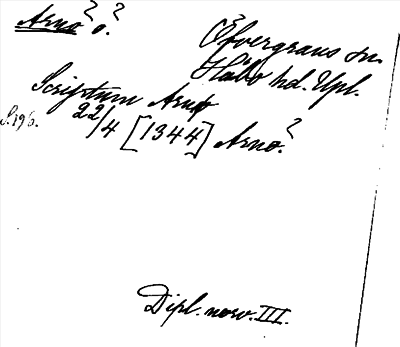 Arnö? ö.?
Öfvergrans sn.
Håbo hd. Upl.
Scriptum Arnø
S. 196. 22/4 [1344] Arnö.?
Dipl. norv. III.